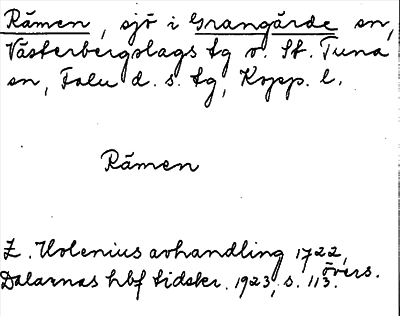 Råmen, sjö i Grangärde sn,
Västerbergslags tg o. St. Tuna
sn, Falu d. s. tg, Kopp. l.
Råmen
E. Holenius avhandling 1722,
övers.
Dalarnas hbf tidskr. 1923, s. 113.